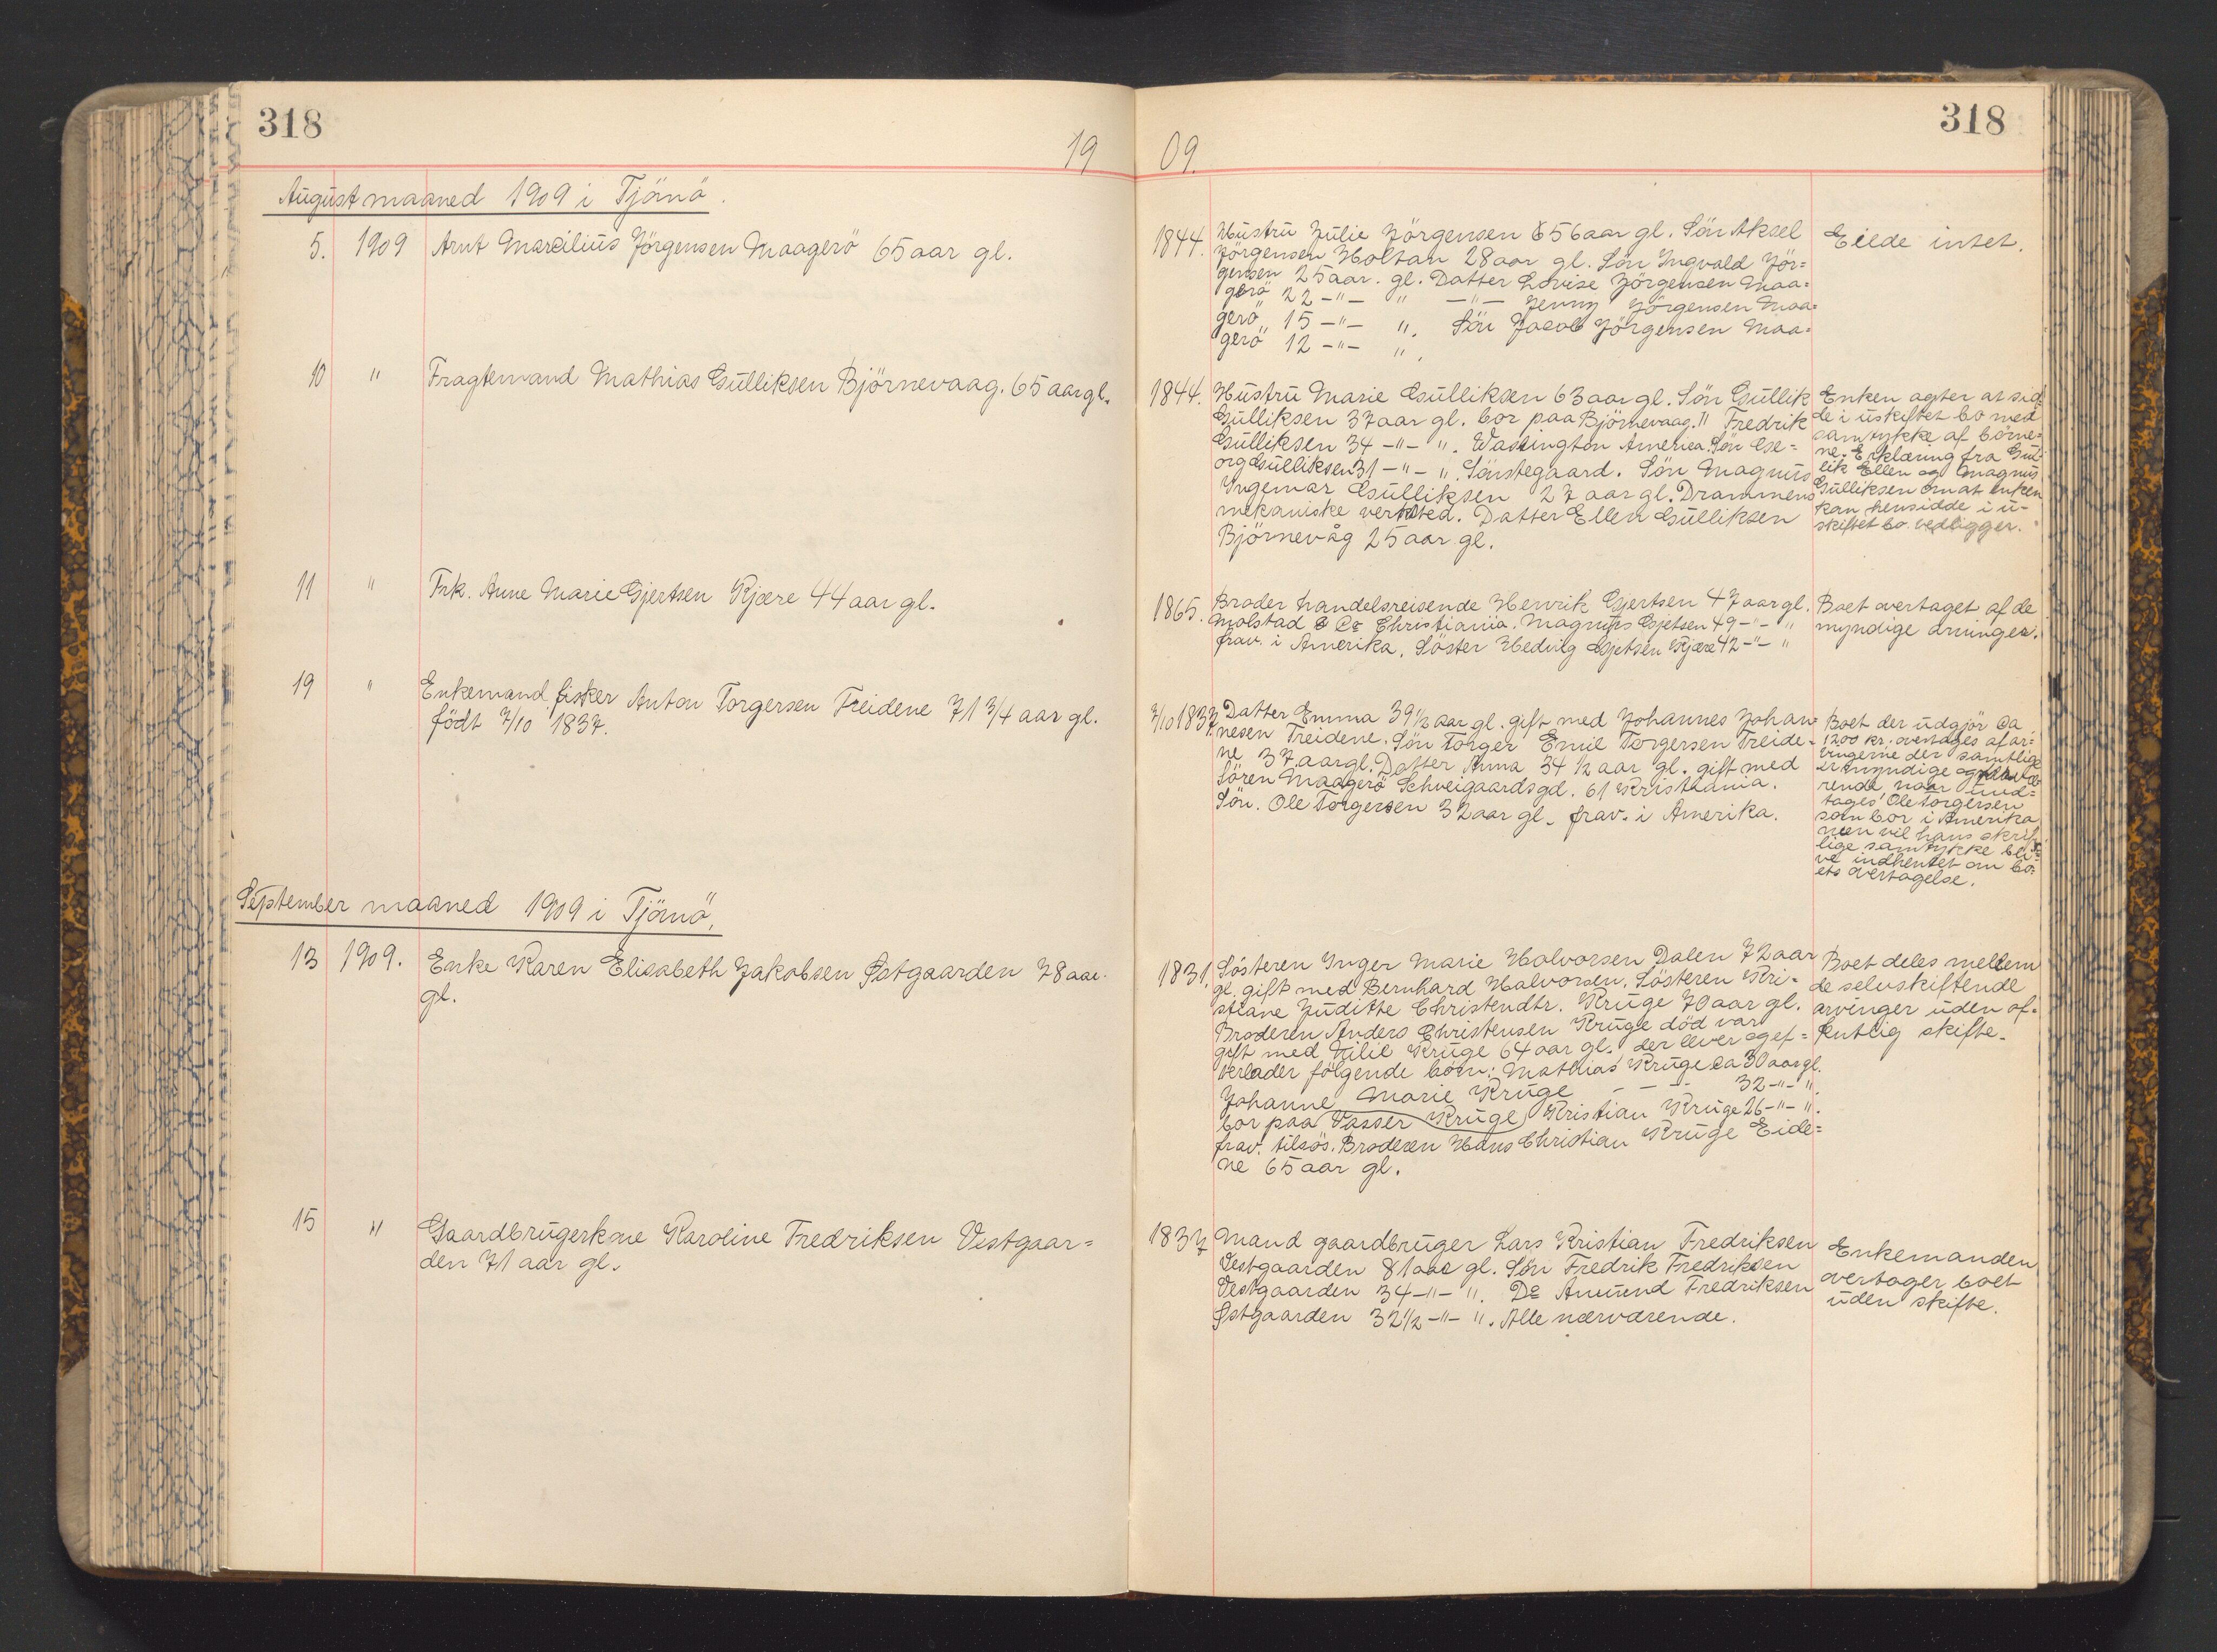 318
318
19 09.
August maaned 1909 i Tjömö.
5. 1909 Arnt Marcilius Jörgensen Maagerö 65 aar gl.
1844. Hustru Julie Jörgensen 56 aar gl. Sön Aksel
Jörgensen Holtan 28 aar gl. Sön Ingvald Jör=
gensen 25 aar. gl. Datter Lovise Jörgensen Maa=
gerö 22 -"- " -"- Jenny Jörgensen Maa=
gerö 15 -"- ". Sön Jacob Jörgensen Maa=
gerö 12 -"- ".
Eiede intet.
10 " Fragtemand Mathias Gulliksen Björnevaag. 65 aar gl.
1844. Hustru Marie Gulliksen 63 aar gl. Sön Gullik
Gulliksen 37 aar gl. bor paa Björnevaag. " Fredrik
Gulliksen 34 -"- ". Wastington America. Sön Ge=
org Gulliksen 31 -"- ". Sönstegaard. Sön Magnus
Ingemar Gulliksen 27 aar gl. Drammens
mekaniske verksted. Datter Ellen Gulliksen
Björnevåg 25 aar gl.
Enken agter at sid=
de i uskiftet bo med
samtykke af börne=
ne. Erklæring fra Gul=
lik Ellen og Magnus
Gulliksen om at enken
kan hensidde i u-
skiftet bo vedligger.
11 " Frk. Anne Marie Gjertsen Kjære 44 aar gl.
1865. Broder handelsreisende Henrik Gjertsen 47 aar gl.
Molstad & Co Christiania. Magnus Gjetsen 49 -"- "
frav. i Amerika. Söster Hedvig Gjetsen Kjære 42 -"- "
Boet overtaget af de
myndige arvinger.
19 " Enkemand fisker Anton Torgersen Treidene 71 3/4 aar gl.
födt 7/10 1837.
7/10 1837 Datter Emma 39 1/2 aar gl. gift med Johannes Johan=
nesen Treidene. Sön Torger Emil Torgersen Treide-
ne 37 aar gl. Datter Anna 34 1/2 aar gl. gift med
Sören Maagerö Schveigaardsgd. 61 Kristiania.
Sön. Ole Torgersen 32 aar gl. frav. i Amerika.
Boet der udgjör ca
1200 kr. overtages af ar=
vingerne der samtlige
er myndige og
rende naar und=
tages Ole Torgersen
som bor i Amerika
men vil hans skrift=
lige samtykke bli=
ve indhentet om bo=
ets overtagelse.
September maaned 1909 i Tjömö.
13 1909. Enke Karen Elisabeth Jakobsen Østgaarden 78 aar
gl.
1831. Sösteren Inger Marie Halvorsen Dalen 72 aar
gl. gift med Bernhard Halvorsen. Sösteren Kri-
stiane Juditte Christendtr. Kruge 70 aar gl.
Broderen Anders Christensen Kruge död var
gift med Julie Kruge 64 aar gl. der lever og ef=
terlader fölgende börn: Mathias Kruge ca 30 aar gl.
Johanne Marie Kruge - - - 32 -"- "
bor paa Vasser Kruge, Kristian Kruge 26 -"- ".
frav. tilsös. Broderen Hans Christian Kruge Eide=
ne 65 aar gl.
Boet deles mellem
de selvskiftende
arvinger uden of-
fentlig skifte.
15 " Gaardbrugerkone Karoline Fredriksen Vestgaar=
den 71 aar gl.
1837 Mand gaardbruger Lars Kristian Fredriksen
Vestgaarden 81 aar gl. Sön Fredrik Fredriksen
Vestgaarden 34 -"- ". Do Amund Fredriksen
Østgaarden 32 1/2 -"- ". Alle nærværende.
Enkemanden
overtager boet
uden skifte.